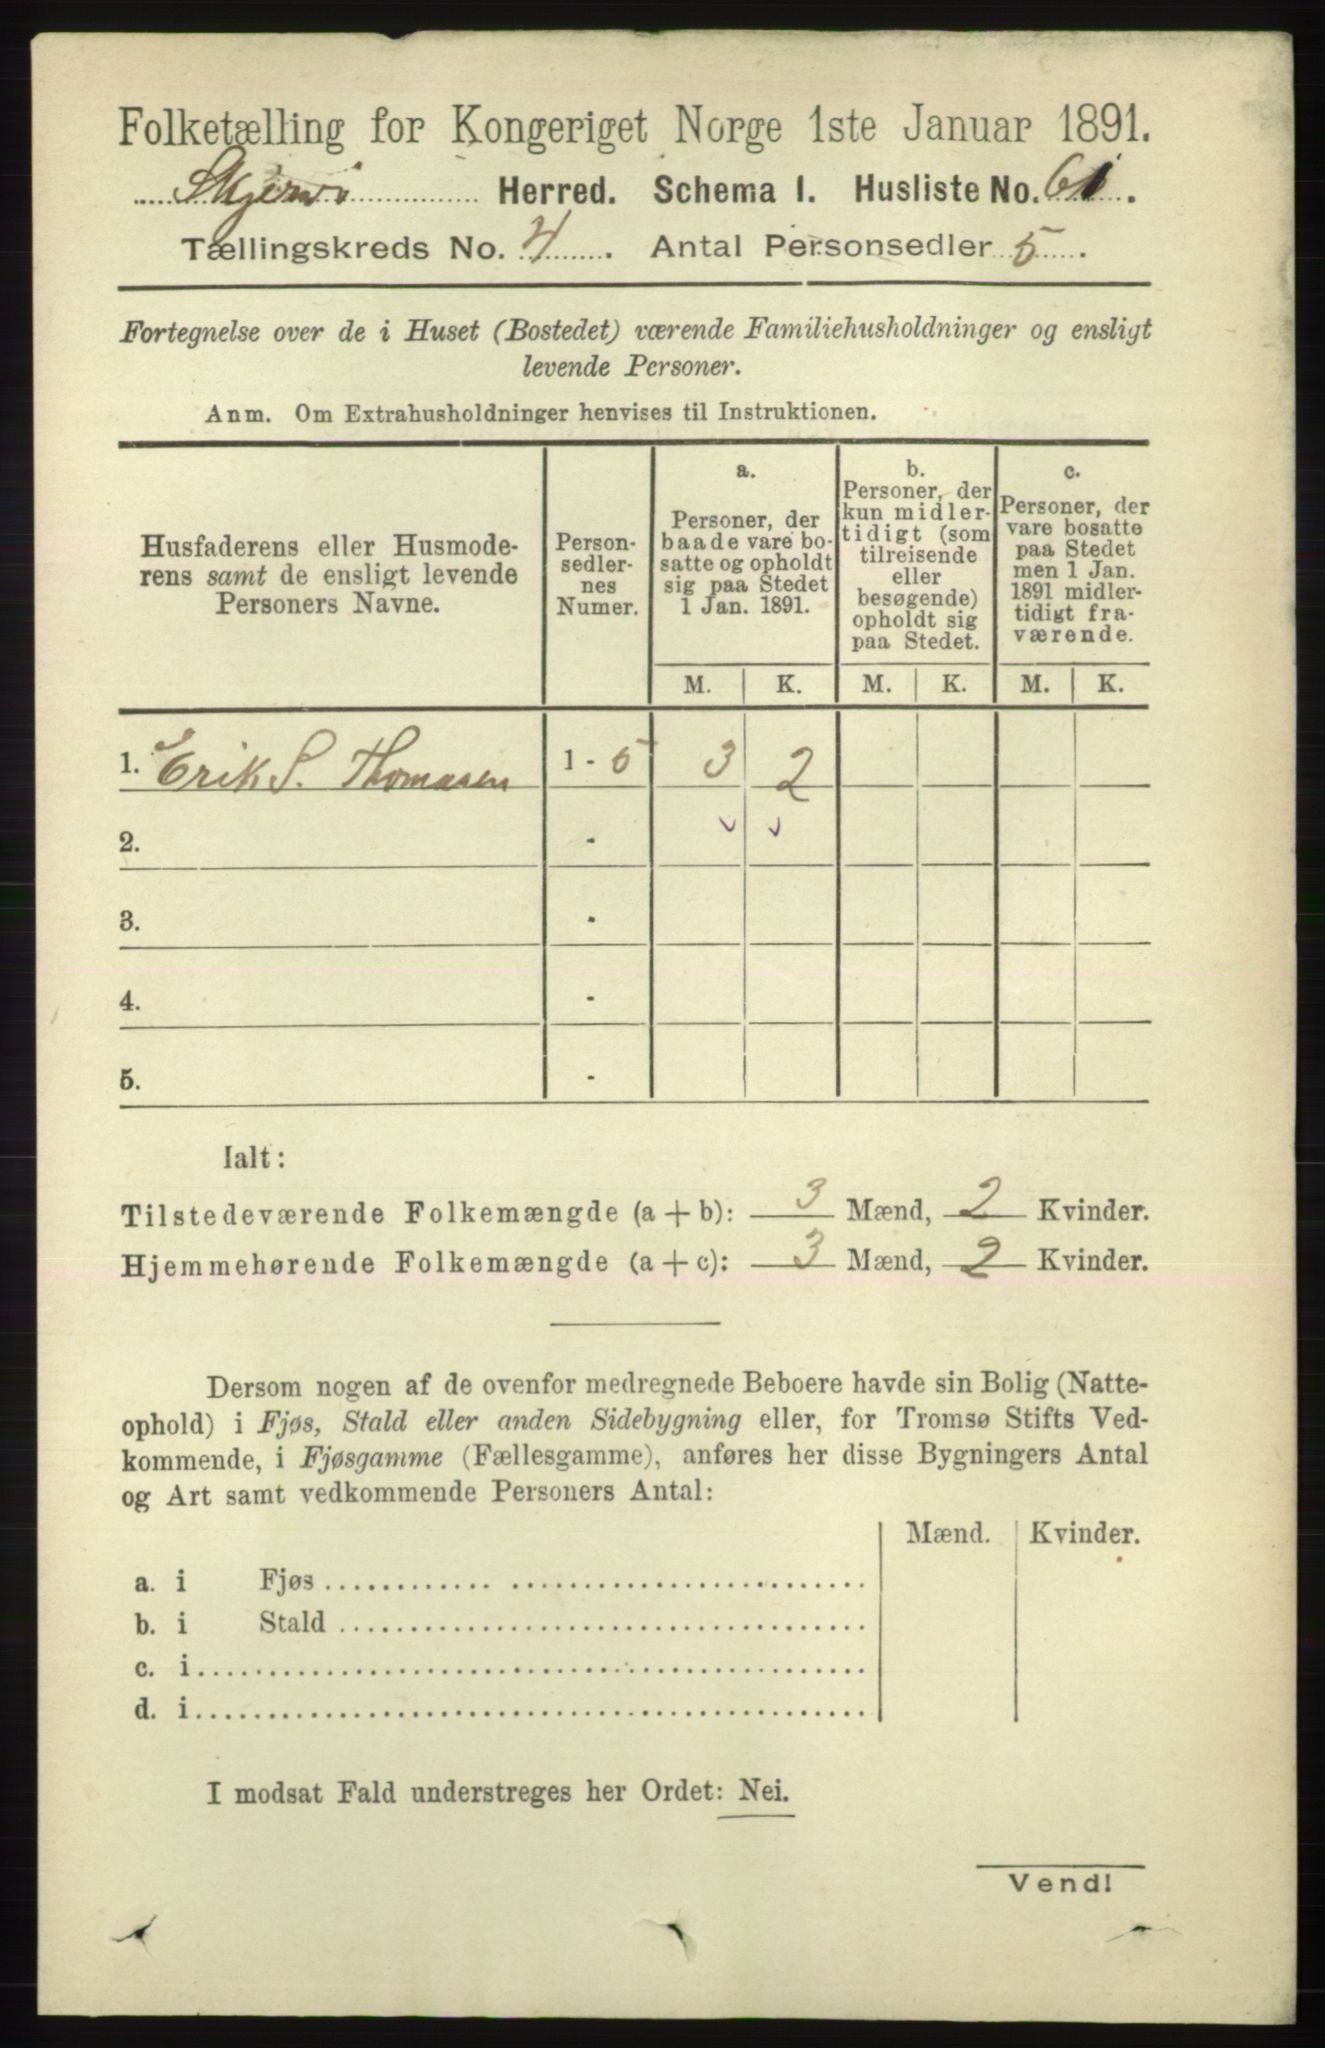 Folketælling for Kongeriget Norge 1ste Januar 1891.
Skjervø Herred. Schema I. Husliste No. 61.
Tællingskreds No. 4. Antal Personsedler 5.
Fortegnelse over de i Huset (Bostedet) værende Familiehusholdninger og ensligt
levende Personer.
Anm. Om Extrahusholdninger henvises til Instruktionen.
Husfaderens eller Husmode-
rens samt de ensligt levende
Personers Navne.
Person-
sedler-
nes
Numer.
a.
Personer, der
baade vare bo-
satte og opholdt
sig paa Stedet
1 Jan. 1891.
b.
Personer, der
kun midler-
tidigt (som
tilreisende
eller
besøgende)
opholdt sig
paa Stedet.
c.
Personer, der
vare bosatte
paa Stedet
men 1 Jan.
1891 midler-
tidigt fra-
værende.
M. K. M. K. M. K.
1. Erik S. Thomasen 1 - 5 3 2
2. -
3. -
4. -
5. -
Ialt:
Tilstedeværende Folkemængde (a + b): 3 Mænd, 2 Kvinder.
Hjemmehørende Folkemængde (a + c): 3 Mænd, 2 Kvinder.
Dersom nogen af de ovenfor medregnede Beboere havde sin Bolig (Natte-
ophold) i Fjøs, Stald eller anden Sidebygning eller, for Tromsø Stifts Ved-
kommende, i Fjøsgamme (Fællesgamme), anføres her disse Bygningers Antal
og Art samt vedkommende Personers Antal:
Mænd. Kvinder.
a. i Fjøs
b. i Stald
c. i
d. i
I modsat Fald understreges her Ordet: Nei.
Vend!